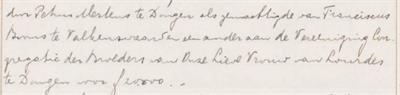 door Petrus Mertens te Dongen als gemachtigde van Franciscus
Broms te Valkenswaard en een ander aan de Vereeniging Con-
gregatie der Broeders van Onze Lieve Vrouw van Lourdes
te Dongen voor